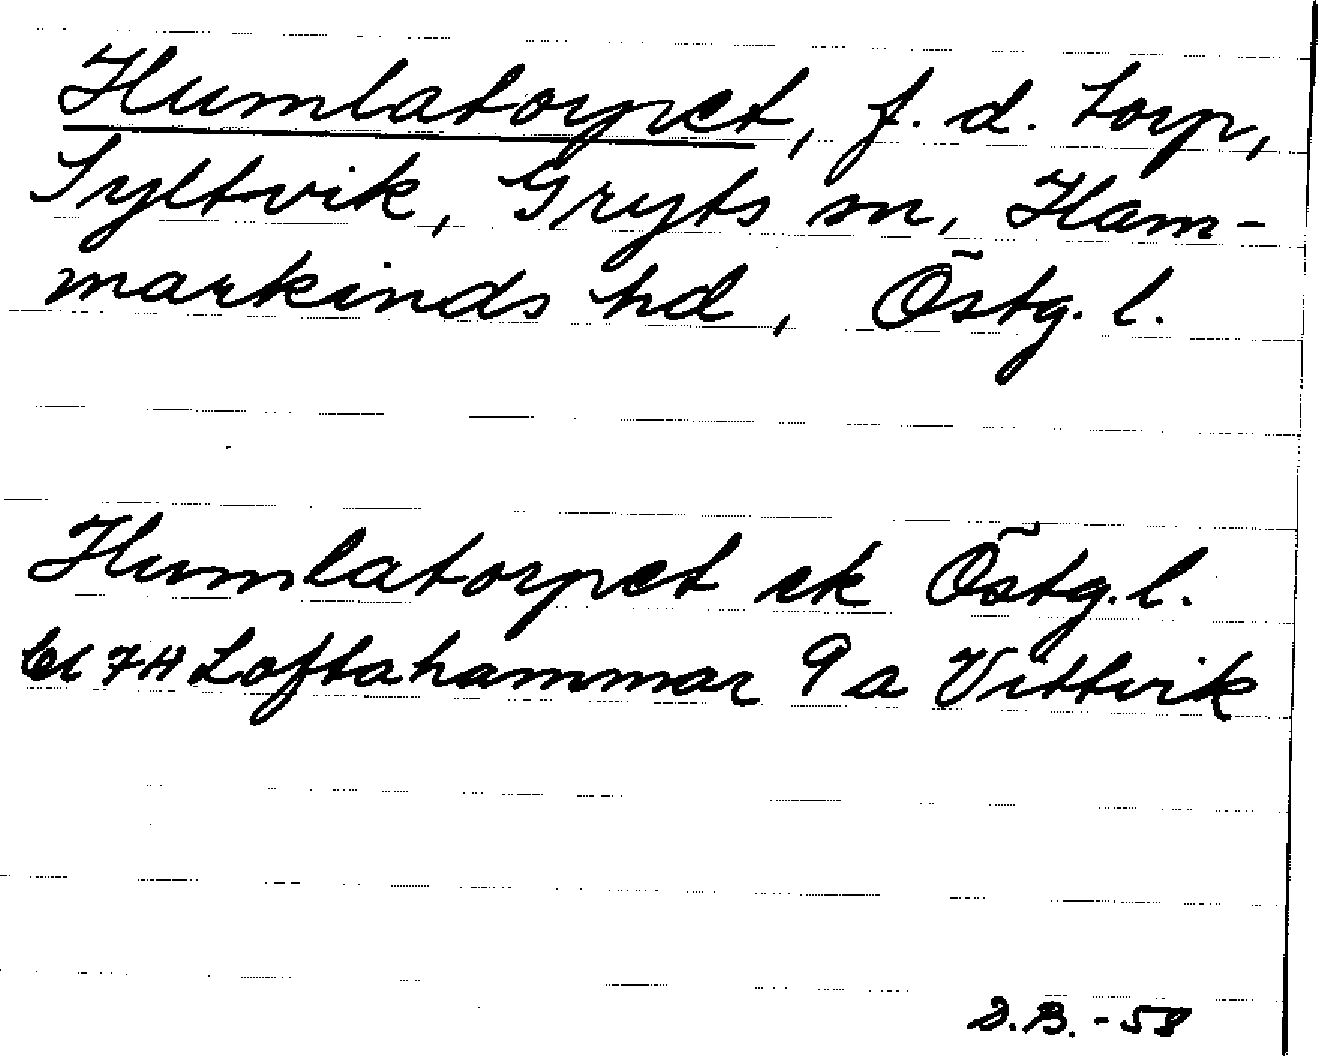 Humlatorpet, f. d. torp,
Syltvik, Gryts sn, Ham-
markinds hd, Östg. l.
Humlatorpet ek Östg. l.
bl 7H Loftahammar 9 a Vittvik
D.B. - 58